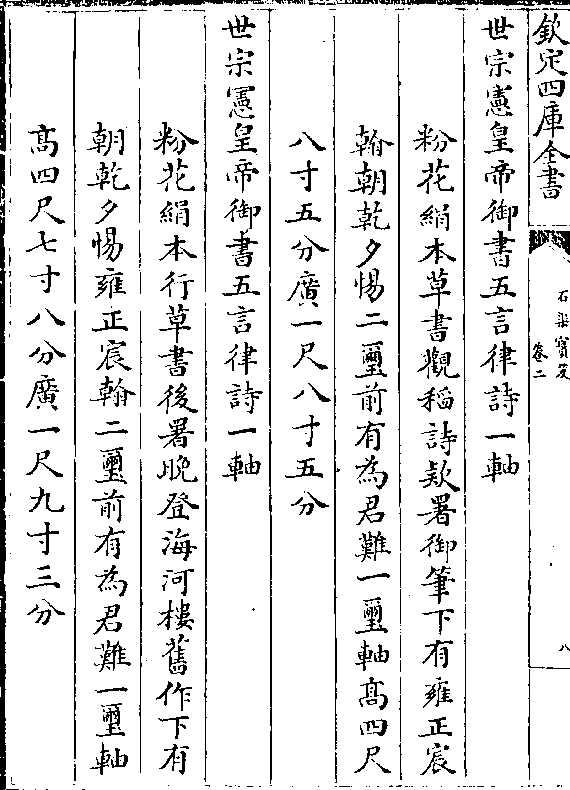 欽定四庫全書
石渠寳笈
卷二
八
世宗憲皇帝御書五言律詩一軸
粉花絹本草書觀稻詩欵署御筆下有雍正宸
翰朝乾夕惕二璽前有為君難一璽軸髙四尺
八寸五分廣一尺八寸五分
世宗憲皇帝御書五言律詩一軸
粉花絹本行草書後署晩登海河樓舊作下有
朝乾夕惕雍正宸翰二璽前有為君難一璽軸
髙四尺七寸八分廣一尺九寸三分